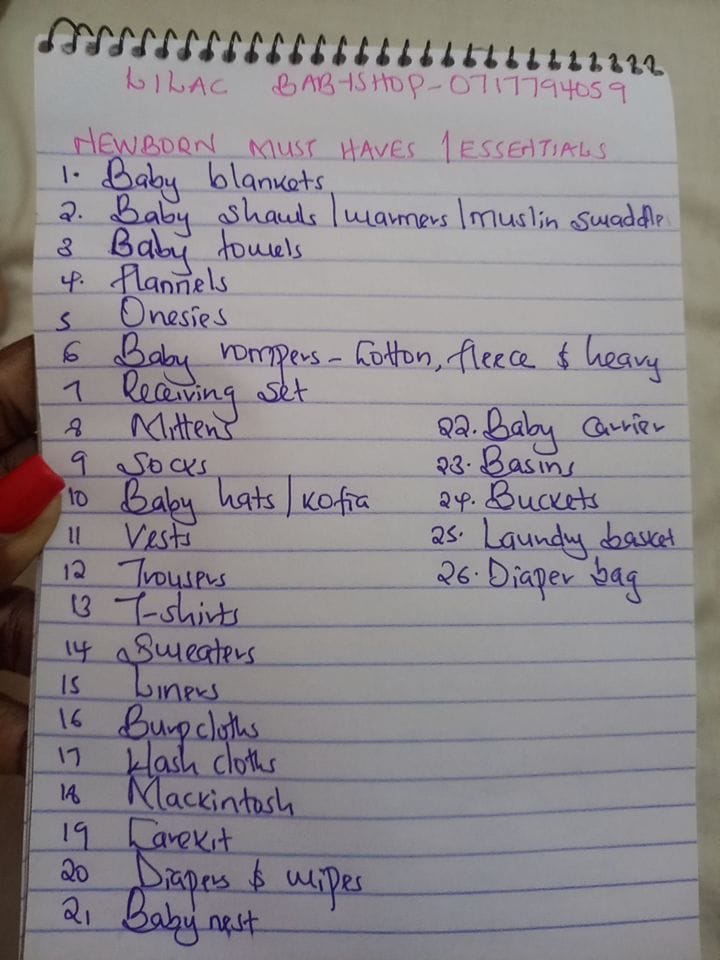 LILAC BABYSHOP-0717794059
NEWBORN MUST HAVES / ESSENTIALS
1. Baby blankets
2. Baby shawls / warmers / muslin swaddle
3 Baby towels
4. flannels
5 Onesies
6 Baby rompers - Cotton, fleece $ heavy
7 Receiving set
8 Mittens
9 Socks
10 Baby hats / kofia
11 Vests
12 Trousers
13 T-shirts
14 Sweaters
15 Liners
16 Burp cloths
17 Wash cloths
18 Mackintosh
19 Carekit
20 Diapers $ wipes
21 Baby nest
22. Baby carrier
23. Basins
24. Buckets
25. Laundry basket
26. Diaper bag